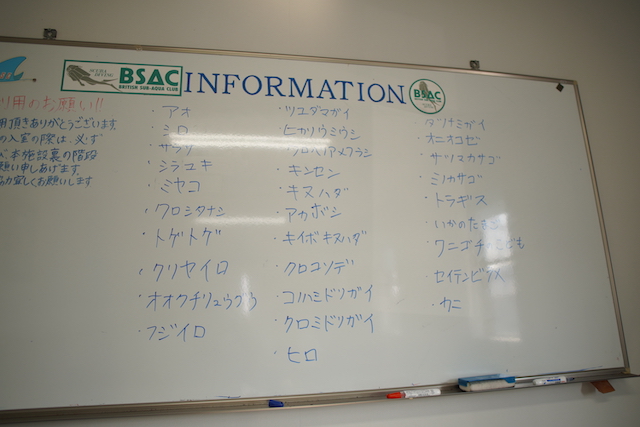 SCUBA DIVING
BSAC
BRITISH SUB-AQUA CLUB
INFORMATION
BSAC
リ用のお願い!!
用頂きありがとうございます。
の入室の際は、必ず
本施設裏の階段
願い申しあげます。
宜しくお願いします
・アオ
・シロ
・サラサ
・シラユキ
・ミヤコ
・クロシタナシ
・トゲトゲ
・クリヤイロ
・オオクチリュウグウ
・フジイロ
・ツユダマガイ
・ヒカリウミウシ
・クロヘリアメフラシ
・キンセン
・キヌハダ
・アカボシ
・キイボキヌハダ
・クロコソデ
・コノハミドリガイ
・クロミドリガイ
・ヒロ
・タツナミガイ
・オニオコゼ
・サツマカサゴ
・ミノカサゴ
・トラギス
・いかのたまご
・ワニゴチのこども
・セイテンビラメ
・カニ